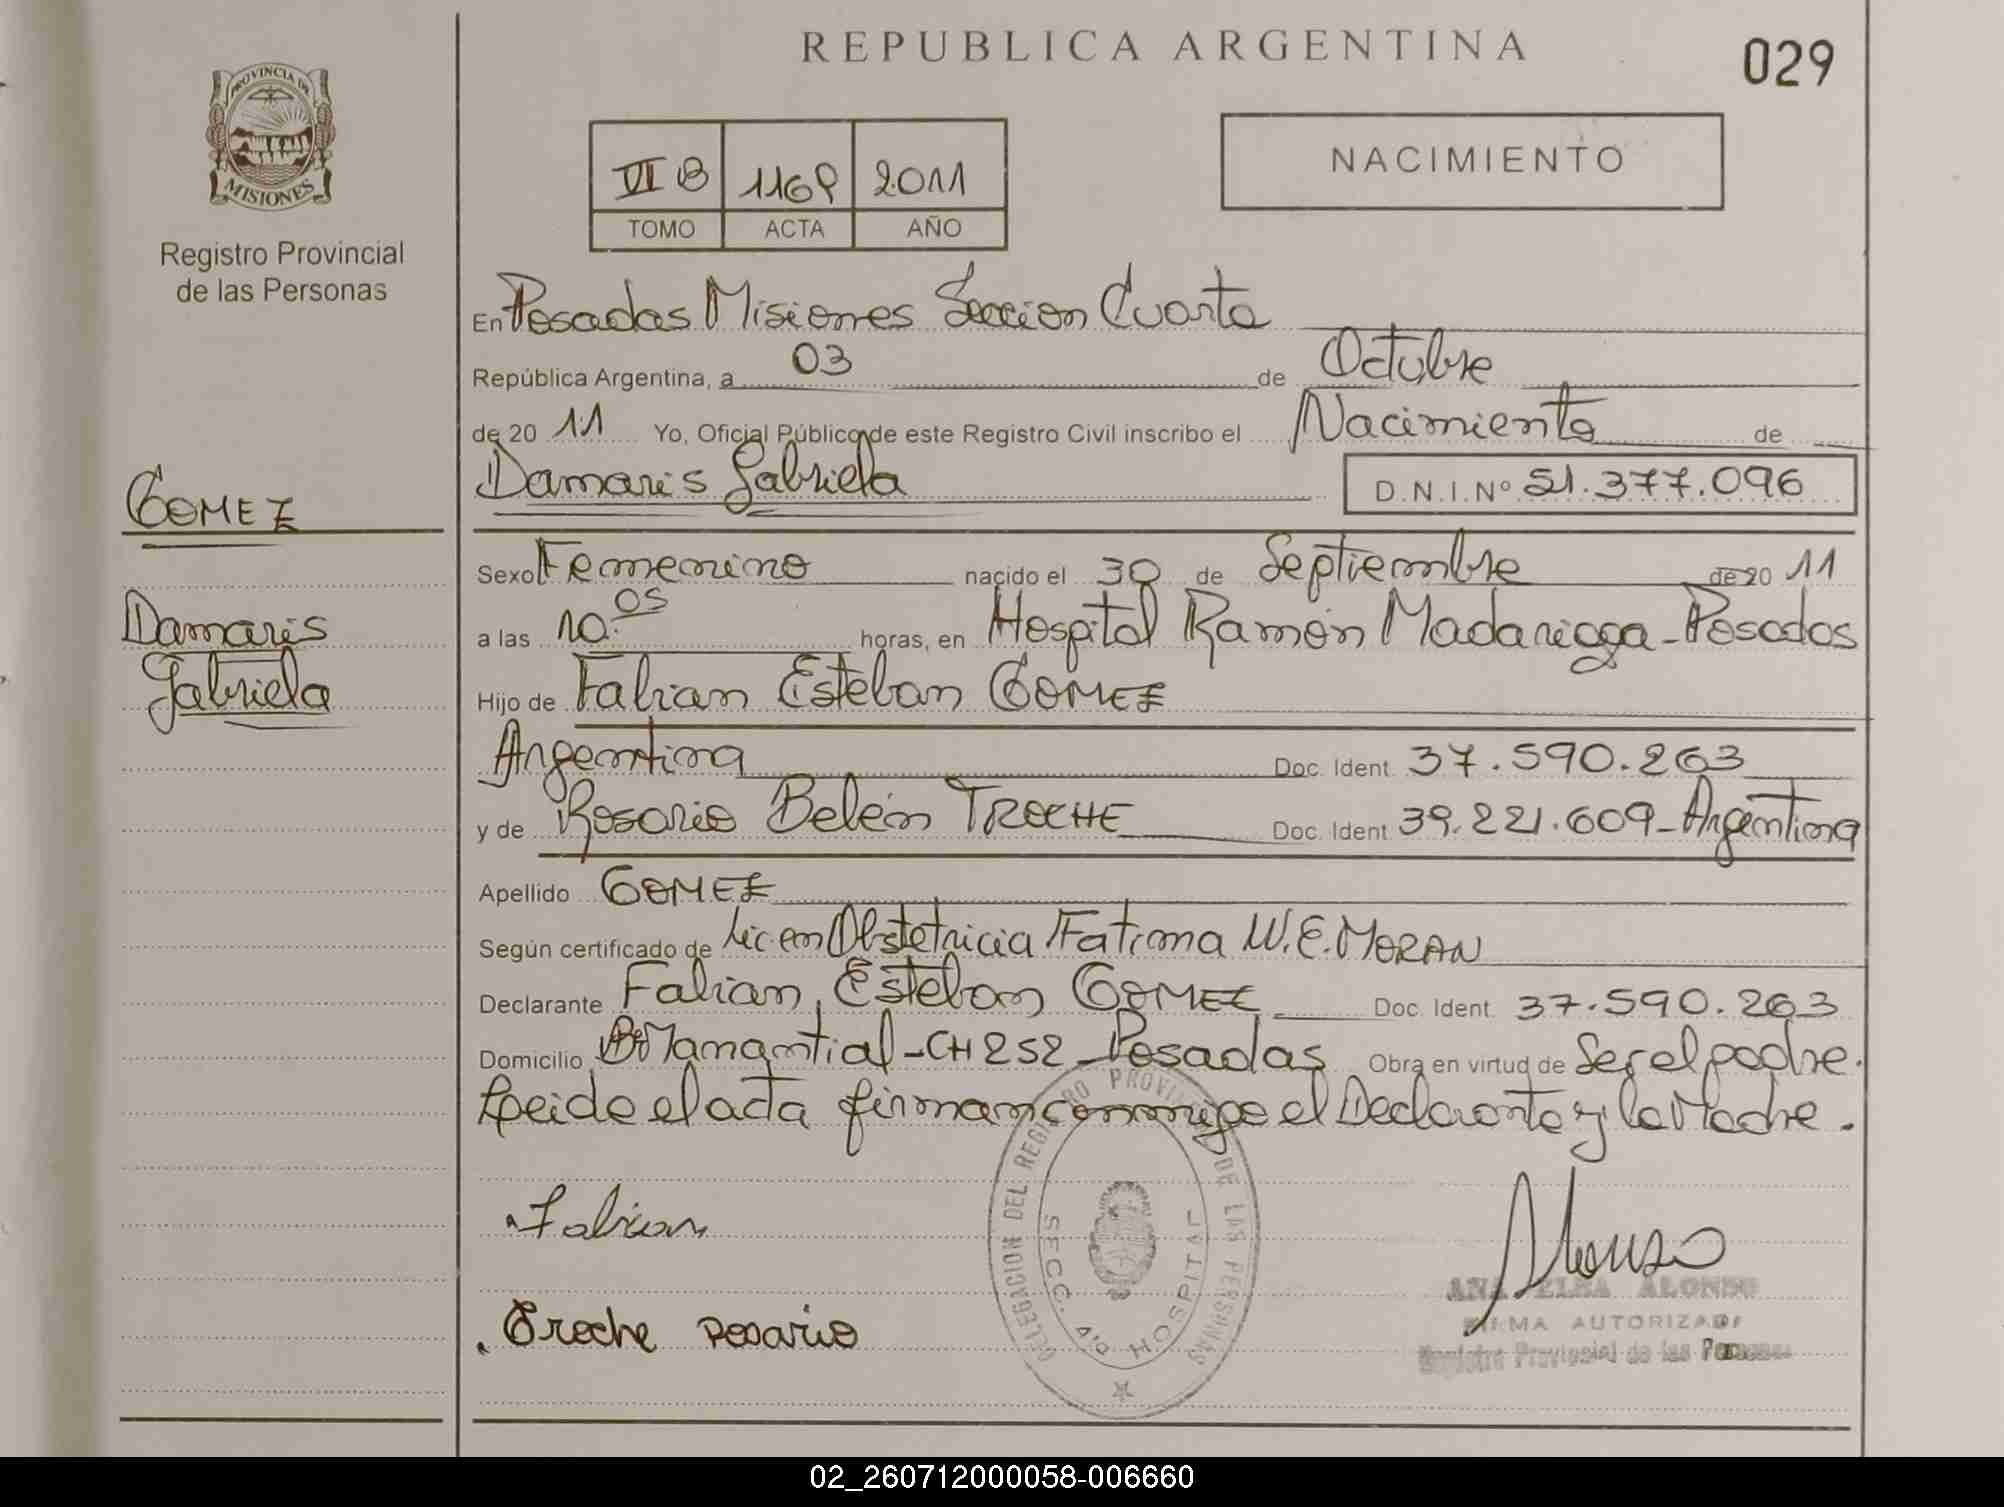 REPUBLICA ARGENTINA
029
PROVINCIA DE
MISIONES
Registro Provincial
de las Personas
VI B 1169 2011
TOMO ACTA AÑO
NACIMIENTO
En Posadas Misiones Seccion Cuarta
República Argentina, a 03 de Octubre
de 20 11 Yo, Oficial Público de este Registro Civil inscribo el Nacimiento de
Damaris Gabriela D.N.I.Nº 51.377.096
GOMEZ
Damaris
Gabriela
Sexo Femenino nacido el 30 de Septiembre de 20 11
a las 10:05 horas, en Hospital Ramón Madariaga - Posadas
Hijo de Fabian Esteban GOMEZ
Argentina Doc. Ident. 37.590.263
y de Rosario Belén TROCHE Doc. Ident. 39.221.609 - Argentina
Apellido GOMEZ
Según certificado de Lic. en Obstetricia Fatima W. E. MORAN
Declarante Fabian Esteban GOMEZ Doc. Ident. 37.590.263
Domicilio Bº Manantial - CH 252 - Posadas Obra en virtud de Ser el padre.
Leido el acta firman conmigo el Declarante y la Madre.
Fabian
Troche Rosario
DELEGACION DEL REGISTRO PROVINCIAL DE LAS PERSONAS
SECC. 4ta HOSPITAL
Alonso
ANA ELBA ALONSO
FIRMA AUTORIZADA
Registro Provincial de las Personas
02_260712000058-006660